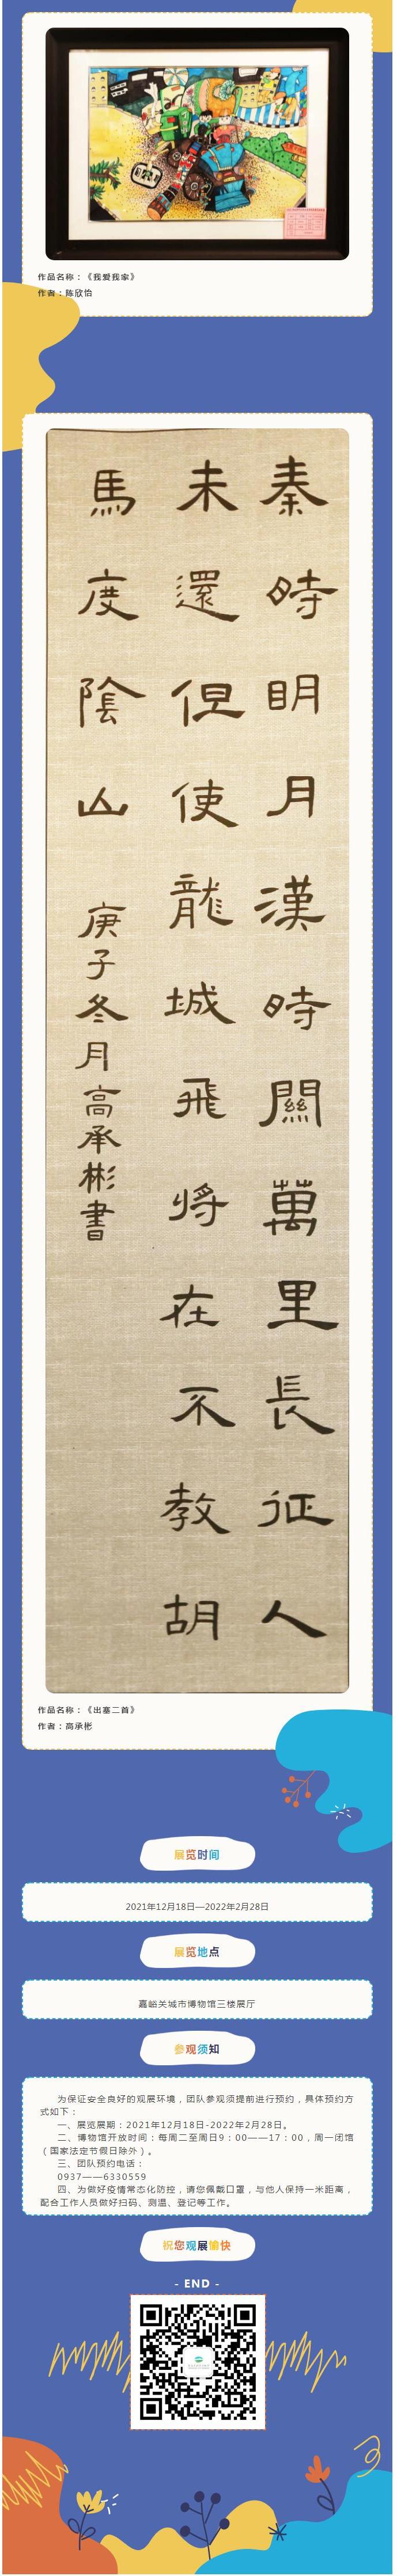 作品名称：《我爱我家》
作者：陈欣怡
秦時明月漢時關萬里長征人
未還但使龍城飛將在不教胡
馬度陰山
庚子冬月高承彬書
作品名称：《出塞二首》
作者：高承彬
展览时间
2021年12月18日—2022年2月28日
展览地点
嘉峪关城市博物馆三楼展厅
参观须知
为保证安全良好的观展环境，团队参观须提前进行预约，具体预约方
式如下：
一、展览展期：2021年12月18日-2022年2月28日。
二、博物馆开放时间：每周二至周日9：00——17：00，周一闭馆
（国家法定节假日除外）。
三、团队预约电话：
0937——6330559
四、为做好疫情常态化防控，请您佩戴口罩，与他人保持一米距离，
配合工作人员做好扫码、测温、登记等工作。
祝您观展愉快
- END -